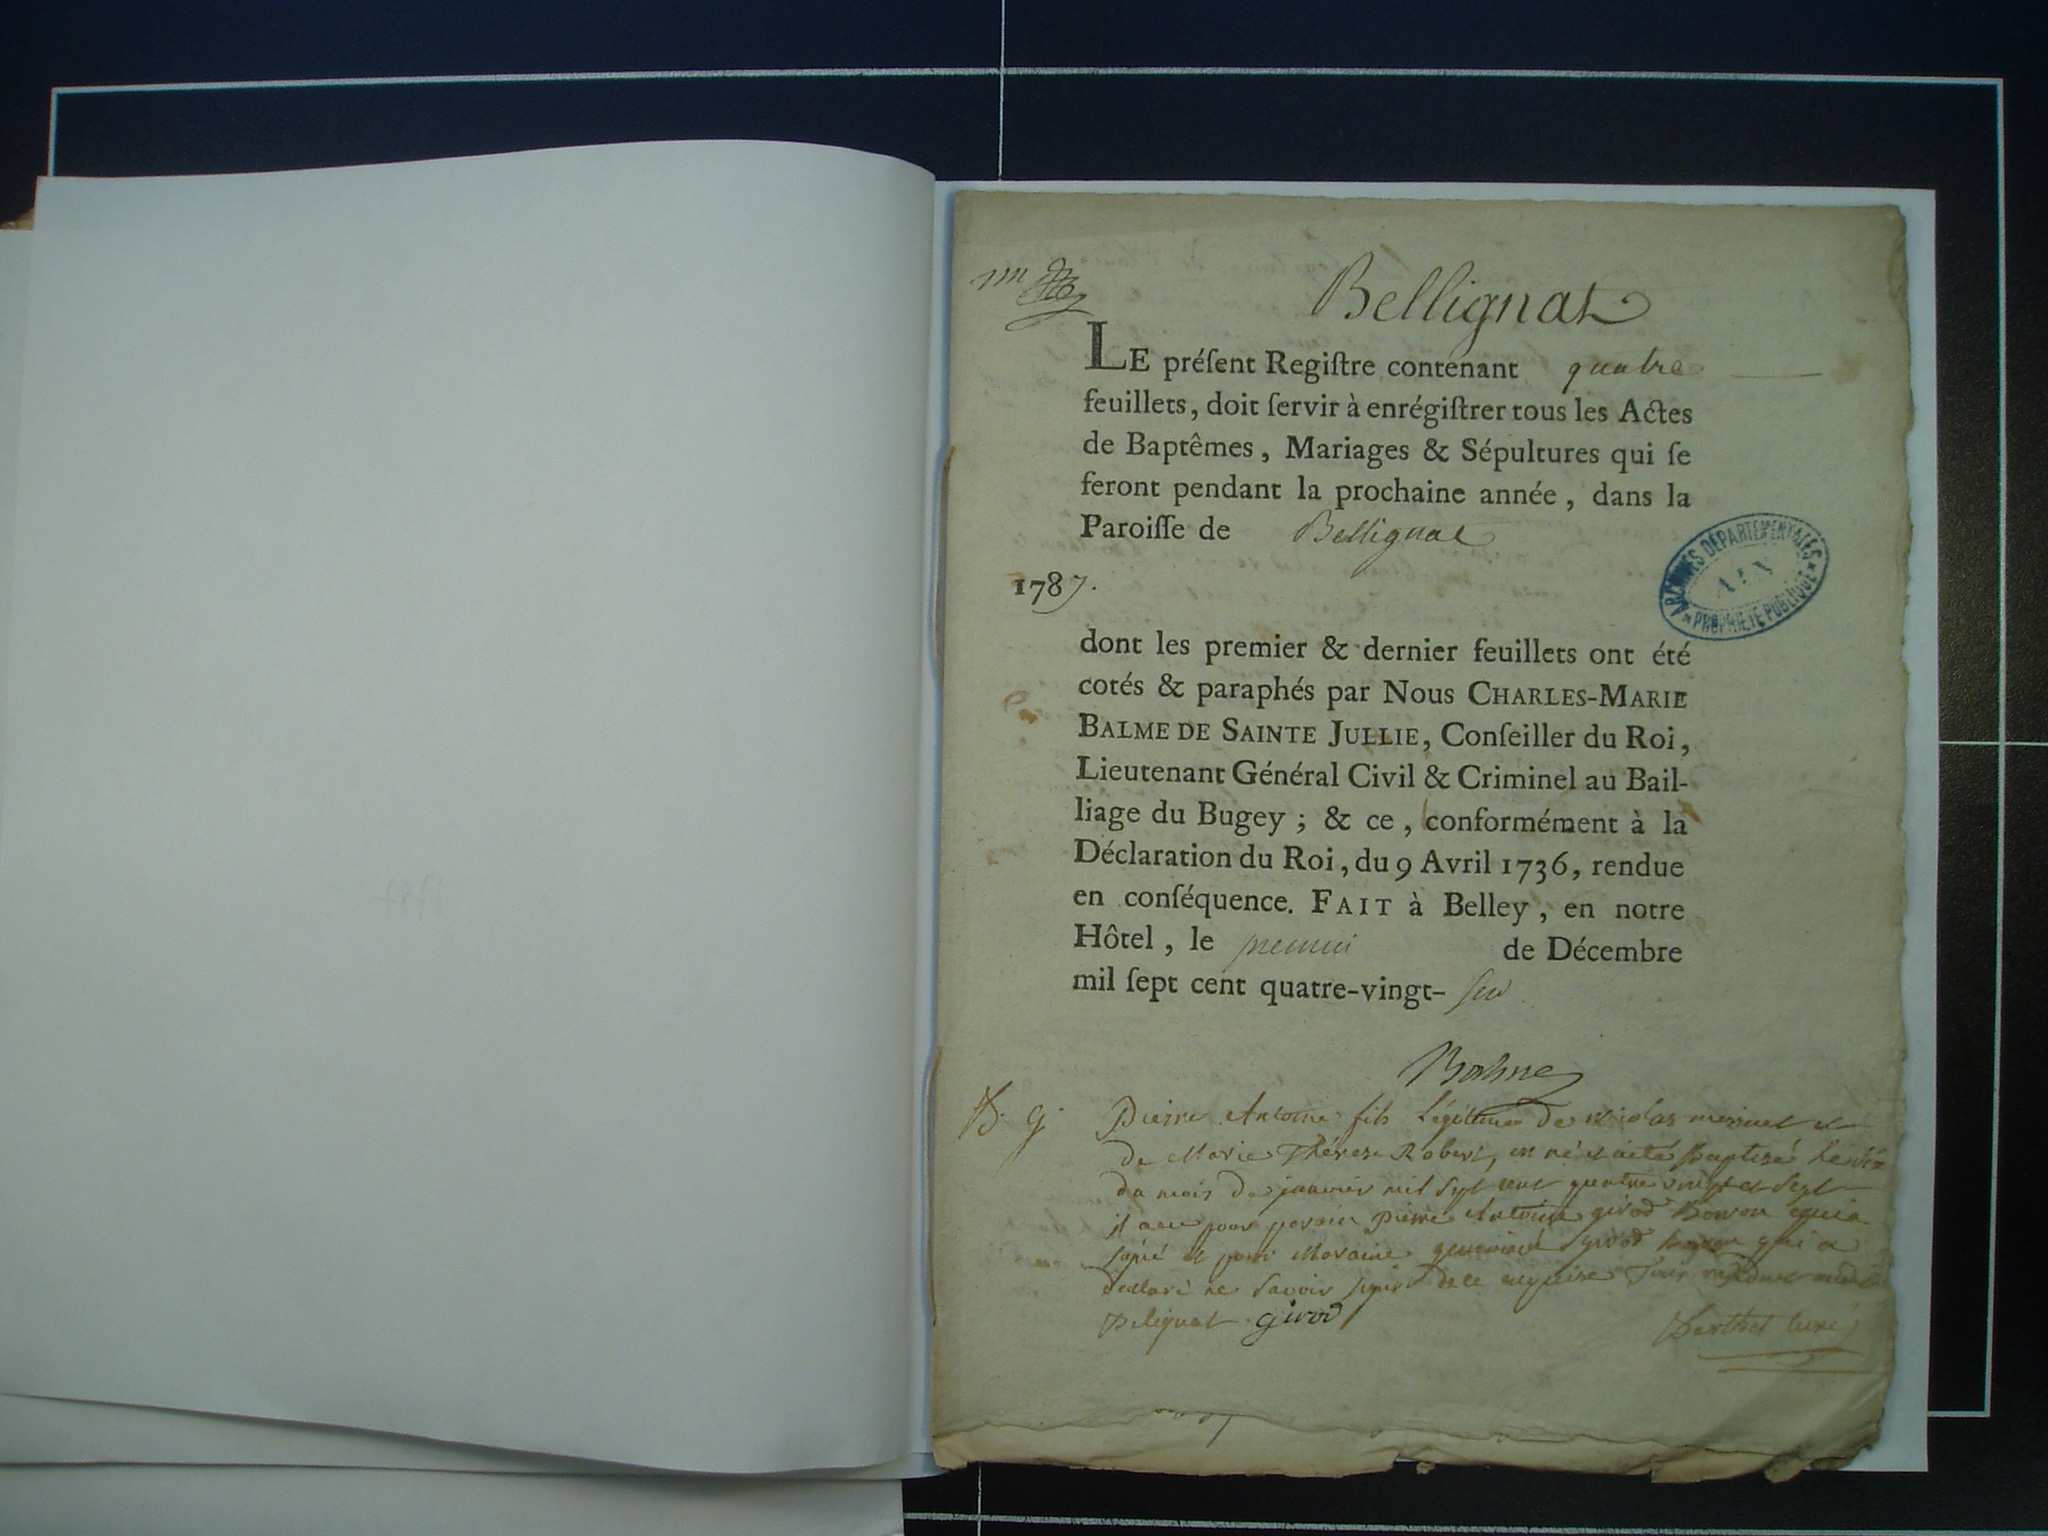 Bellignat
LE préſent Regiſtre contenant quatre
feuillets, doit ſervir à enrégiſtrer tous les Actes
de Baptêmes, Mariages & Sépultures qui ſe
feront pendant la prochaine année, dans la
Paroiſſe de Bellignat
1787.
ARCHIVES DÉPARTEMENTALES
AIN
PROPRIÉTÉ PUBLIQUE
dont les premier & dernier feuillets ont été
cotés & paraphés par Nous CHARLES-MARIE
BALME DE SAINTE JULLIE, Conſeiller du Roi,
Lieutenant Général Civil & Criminel au Bail-
liage du Bugey ; & ce, conformément à la
Déclaration du Roi, du 9 Avril 1736, rendue
en conſéquence. FAIT à Belley, en notre
Hôtel, le premier de Décembre
mil ſept cent quatre-vingt- six
Balme
B. g. Pierre Antoine fils légitime de nicolas et
de Marie Thérese Robert, est né et a été Baptisé le dix
du mois de janvier mil sept cent quatre vingt et sept
il a eu pour parain pierre Antoine girod qui a
signé et pour Maraine girod qui a
declaré ne savoir signer de ce requise
Belignat girod Berthet curé